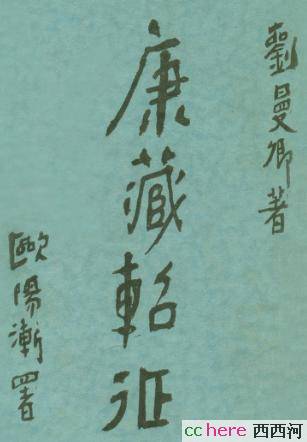 劉曼卿著
康藏軺征
歐陽漸署
cchere 西西河